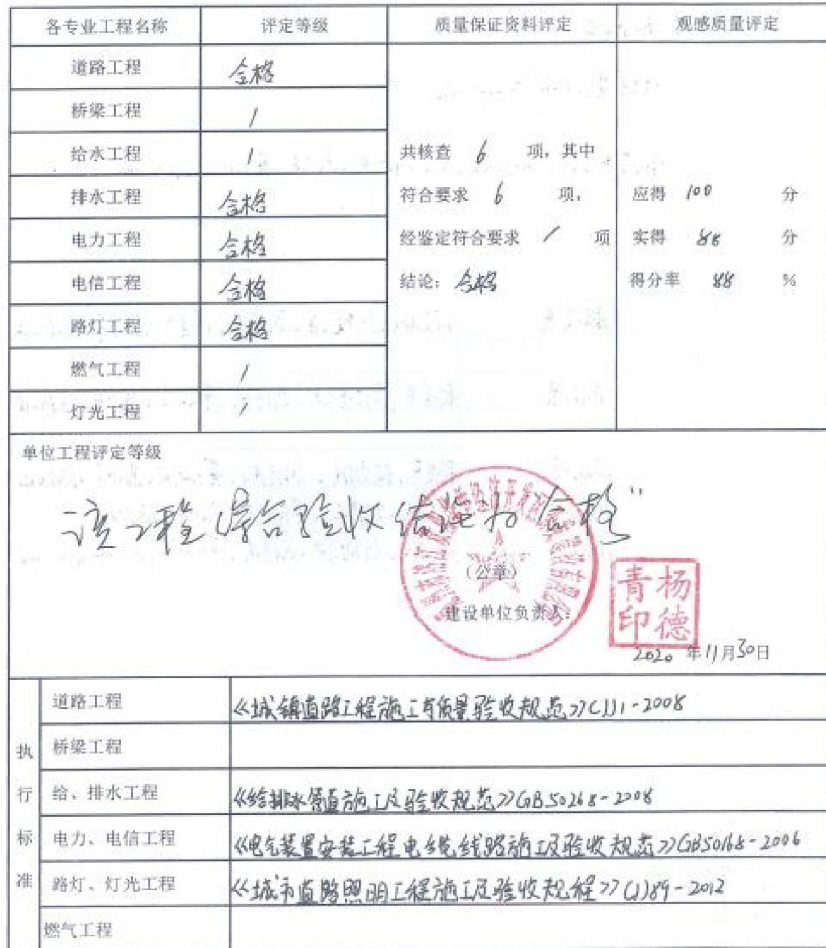 各专业工程名称 评定等级 质量保证资料评定 观感质量评定
道路工程 合格
桥梁工程 /
给水工程 / 共核查 6 项,其中
排水工程 合格 符合要求 6 项, 应得 100 分
电力工程 合格 经鉴定符合要求 / 项 实得 88 分
电信工程 合格 结论:合格 得分率 88 %
路灯工程 合格
燃气工程 /
灯光工程 /
单位工程评定等级
该工程综合验收结论为"合格"
(公章)
建设单位负责人:
杨德青印
2020 年11月30日
执行标准
道路工程 《城镇道路工程施工与质量验收规范》CJJ1-2008
桥梁工程
给、排水工程 《给排水管道施工及验收规范》GB50268-2008
电力、电信工程 《电气装置安装工程电缆线路施工及验收规范》GB50168-2006
路灯、灯光工程 《城市道路照明工程施工及验收规程》CJJ89-2012
燃气工程